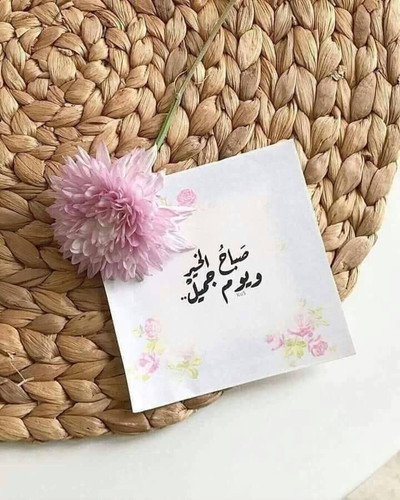 صَباحُ الخير
ويوم جميل..